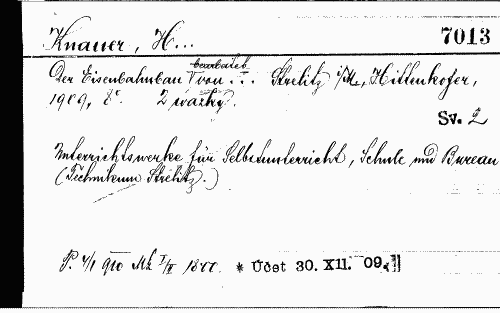 Knauer, H...
7013
bearbeitet
Der Eisenbahnbau von ... Strelitz i/M., Hittenkofer,
1909, 8°. 2 svazky.
Sv. 2
Unterrichtswerke für Selbstunterricht, Schule und Bureau
(Technikum Strelitz.)
P. 4/1 910 Mk I/II 18 * Účet 30. XII. 09.